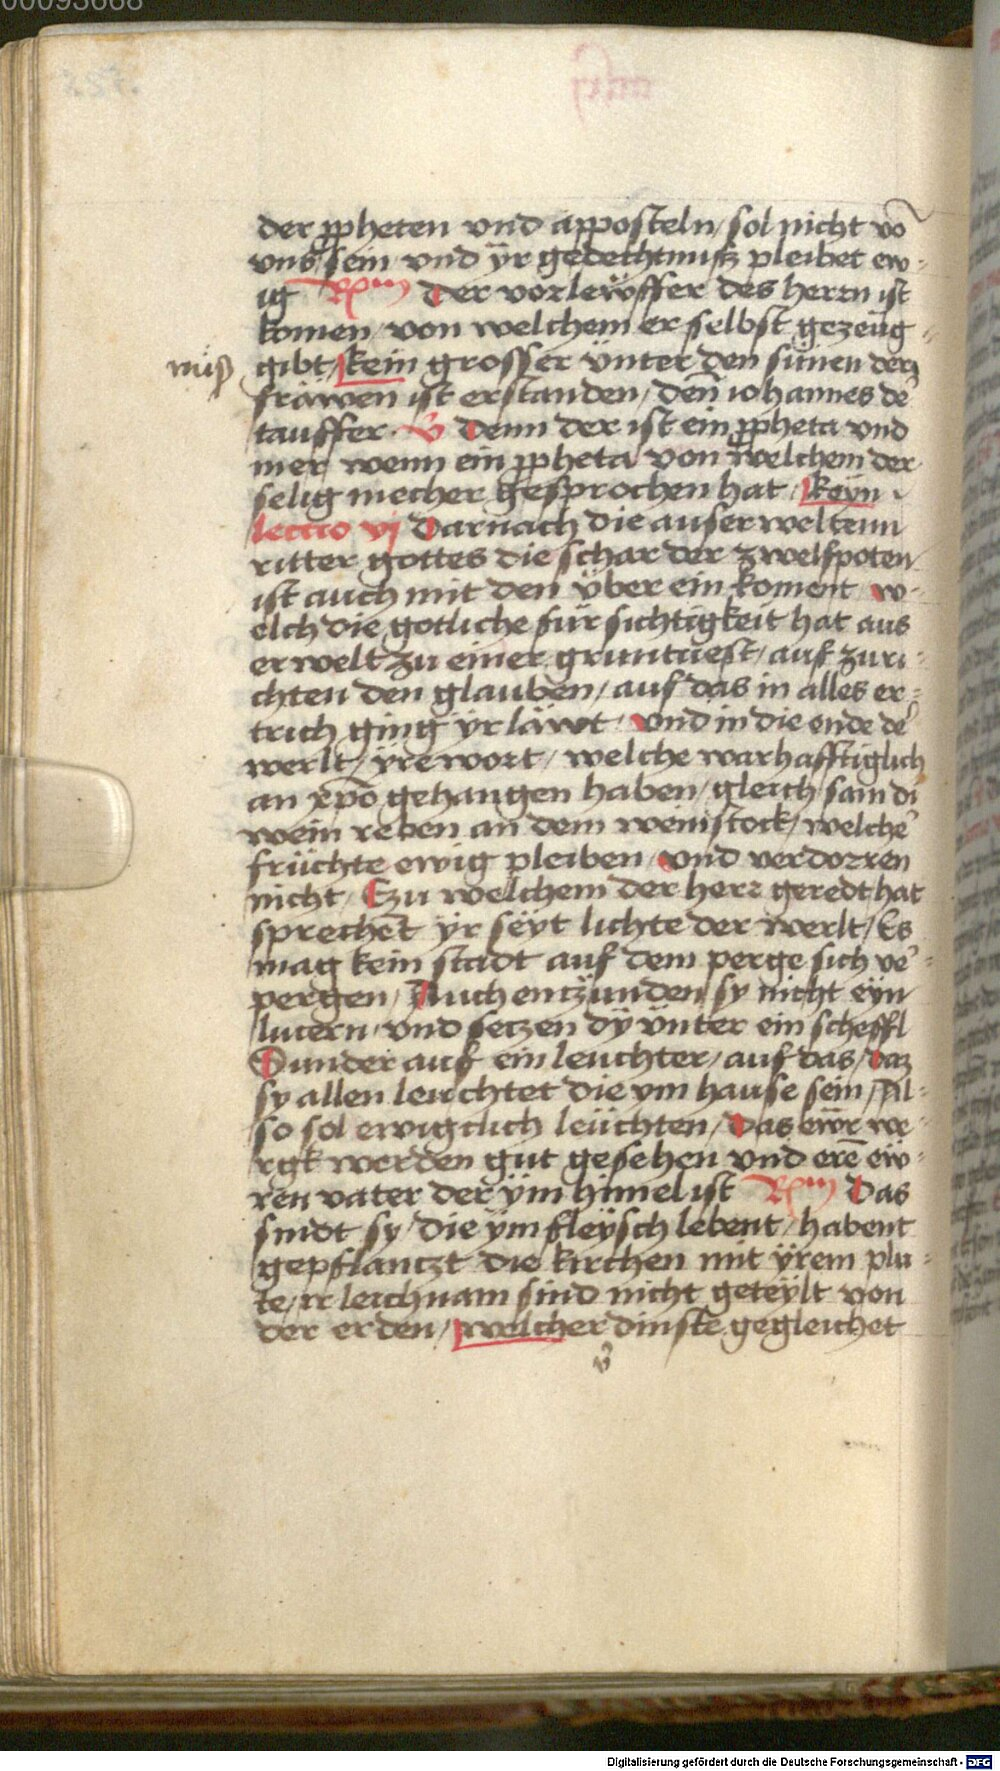 00093668
der ppheten vnd apposteln / sol nicht vō
vns sein / vnd ÿr gedechtnusz pleibet ew-
ig Rm der vorlewffer des herrn ist
komen / von welchem er selbst gezeüg-
nüß gibt / kein grosser ünter den sünen der
fräwen ist erstanden / den iohannes de
tauffer . V denn der ist ein ppheta vnd
mer wenn ein ppheta von welchem der
selig mecher gesprochen hat / keyn
lectio vj Darnach die auserweltenn
ritter gottes die schar der zwelfpoten
ist auch mit den über ein koment / w-
elch die gotliche fürsichtigkeit hat aus
erwelt zu einer gruntuest / auf zuri-
chten den glauben / auf das in alles er-
trich ging ÿr läwt / vnd in die ende de
werlt / ÿre wort / welche warhafftiglich
an xpo gehangen haben / gleich sam di
wein reben an dem weinstock / welche
früchte ewig pleiben / vnd verdorren
nicht / Czu welchem der herr geredt hat
sprechet ÿr seyt lichte der werlt / Es
mag kein stadt auf dem perge sich ve-
pergen / Auch entzunden sy nicht eyn
lucern / vnd setzen dÿ ünter ein scheffl
Sunder auf ein leuchter / auf das / daz
sy allen leuchtet die ym hause sein / Al-
so sol ewigclich leüchten / das ewr we-
rgk werden gut gesehen vnd erē ew-
ren vater der ÿm himel ist Rm Das
sindt sy / die ÿm fleÿsch lebent / habent
gepflantzt die kirchen mit ÿrem plu-
te / ir leichnam sind nicht geteÿlt von
der erden / welcher dinste gegleichet
Digitalisierung gefördert durch die Deutsche Forschungsgemeinschaft - DFG